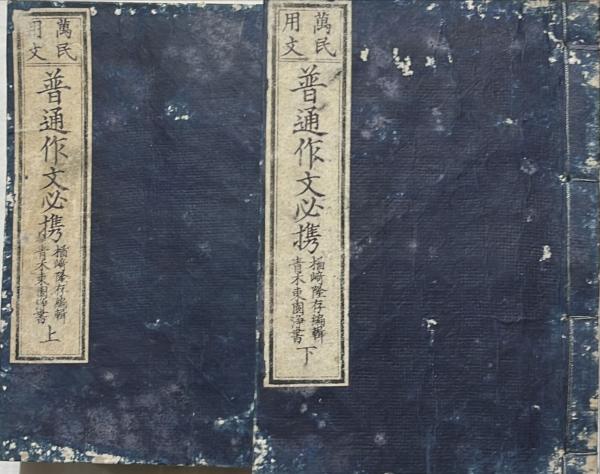 萬民
用文
普通作文必携
楢崎隆存編輯
青木東園淨書
上
萬民
用文
普通作文必携
楢崎隆存編輯
青木東園淨書
下